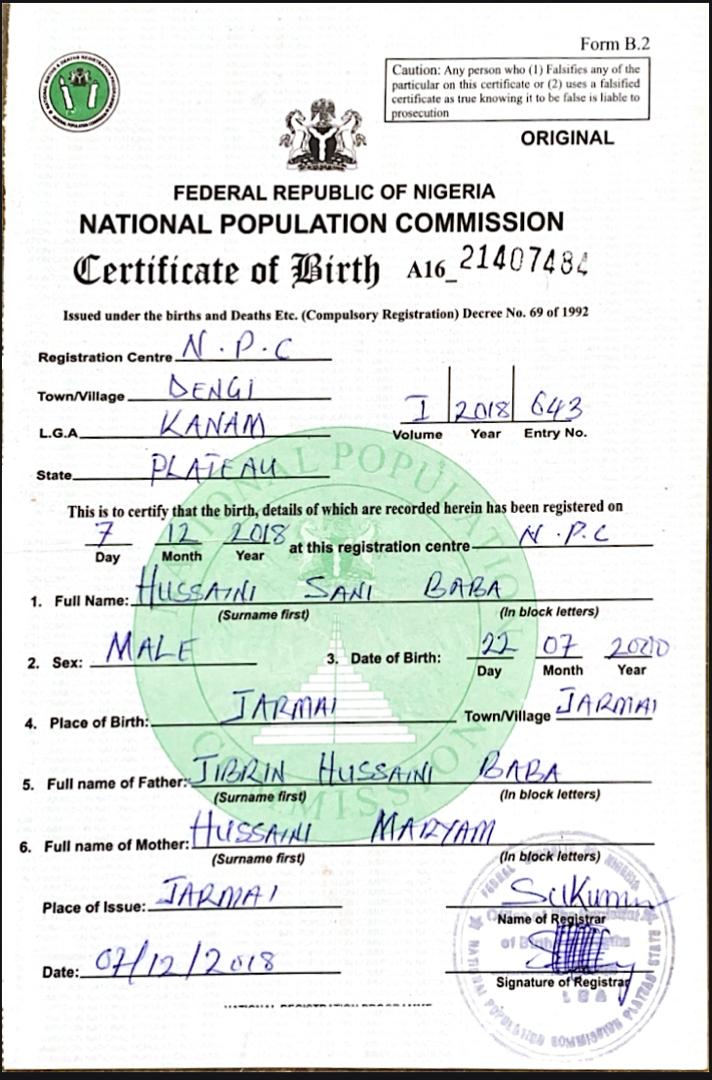 Form B.2
Caution: Any person who (1) Falsifies any of the
particular on this certificate or (2) uses a falsified
certificate as true knowing it to be false is liable to
prosecution
ORIGINAL
FEDERAL REPUBLIC OF NIGERIA
NATIONAL POPULATION COMMISSION
Certificate of Birth A16_21407484
Issued under the births and Deaths Etc. (Compulsory Registration) Decree No. 69 of 1992
Registration Centre N.P.C
Town/Village DENGI
L.G.A KANAM
I 2018 643
Volume Year Entry No.
State PLATEAU
This is to certify that the birth, details of which are recorded herein has been registered on
7 12 2018 at this registration centre N.P.C
Day Month Year
1. Full Name: HUSSAINI SANI BABA
(Surname first) (In block letters)
2. Sex: MALE 3. Date of Birth: 22 07
Day Month Year
4. Place of Birth: JARMAI Town/Village JARMAI
5. Full name of Father: JIBRIN HUSSAINI BABA
(Surname first) (In block letters)
6. Full name of Mother: HUSSAINI MARYAM
(Surname first) (In block letters)
Place of Issue: JARMAI
Name of Registrar
Date: 07/12/2018
Signature of Registrar
NATIONAL POPULATION COMMISSION PLATEAU STATE